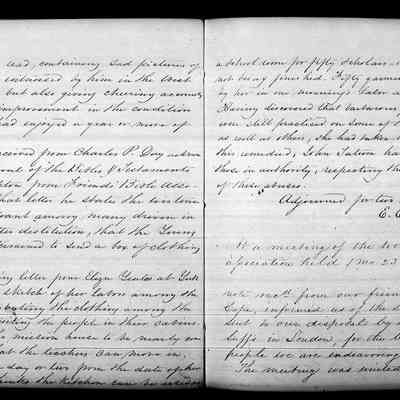 read, containing sad pictures of
witnessed by him in the West
but also giving cheering accounts
improvement in the condition
had enjoyed a year or more of
received from Charles P. Day acknow
of the Bibles & Testaments
from Friends' Bible Asso-
that letter he states the
among many driven in
destitution, that the Young
to send a box of clothing
letter from Eliza Yeates at York
sketch of her labors among the
the clothing among the
the people in their cabins.
mission house to be nearly
that the teachers can move in,
day or two from the date of her
thinks the kitchen can be
a school room for fifty scholars
not being finished. Fifty garments
by her in one morning's labor a
Having discovered that barbarous
were still practiced on some of
as well as others, she had taken
this remedied, John Tatum had
those in authority, respecting the
of these abuses.
Adjourned for two
E. C
At a meeting of the
operation held 1 mo 23
note recd. from our friend
Cope, informed us of the
sent to our disposal by
in London, for the
people we are endeavoring
The meeting was united